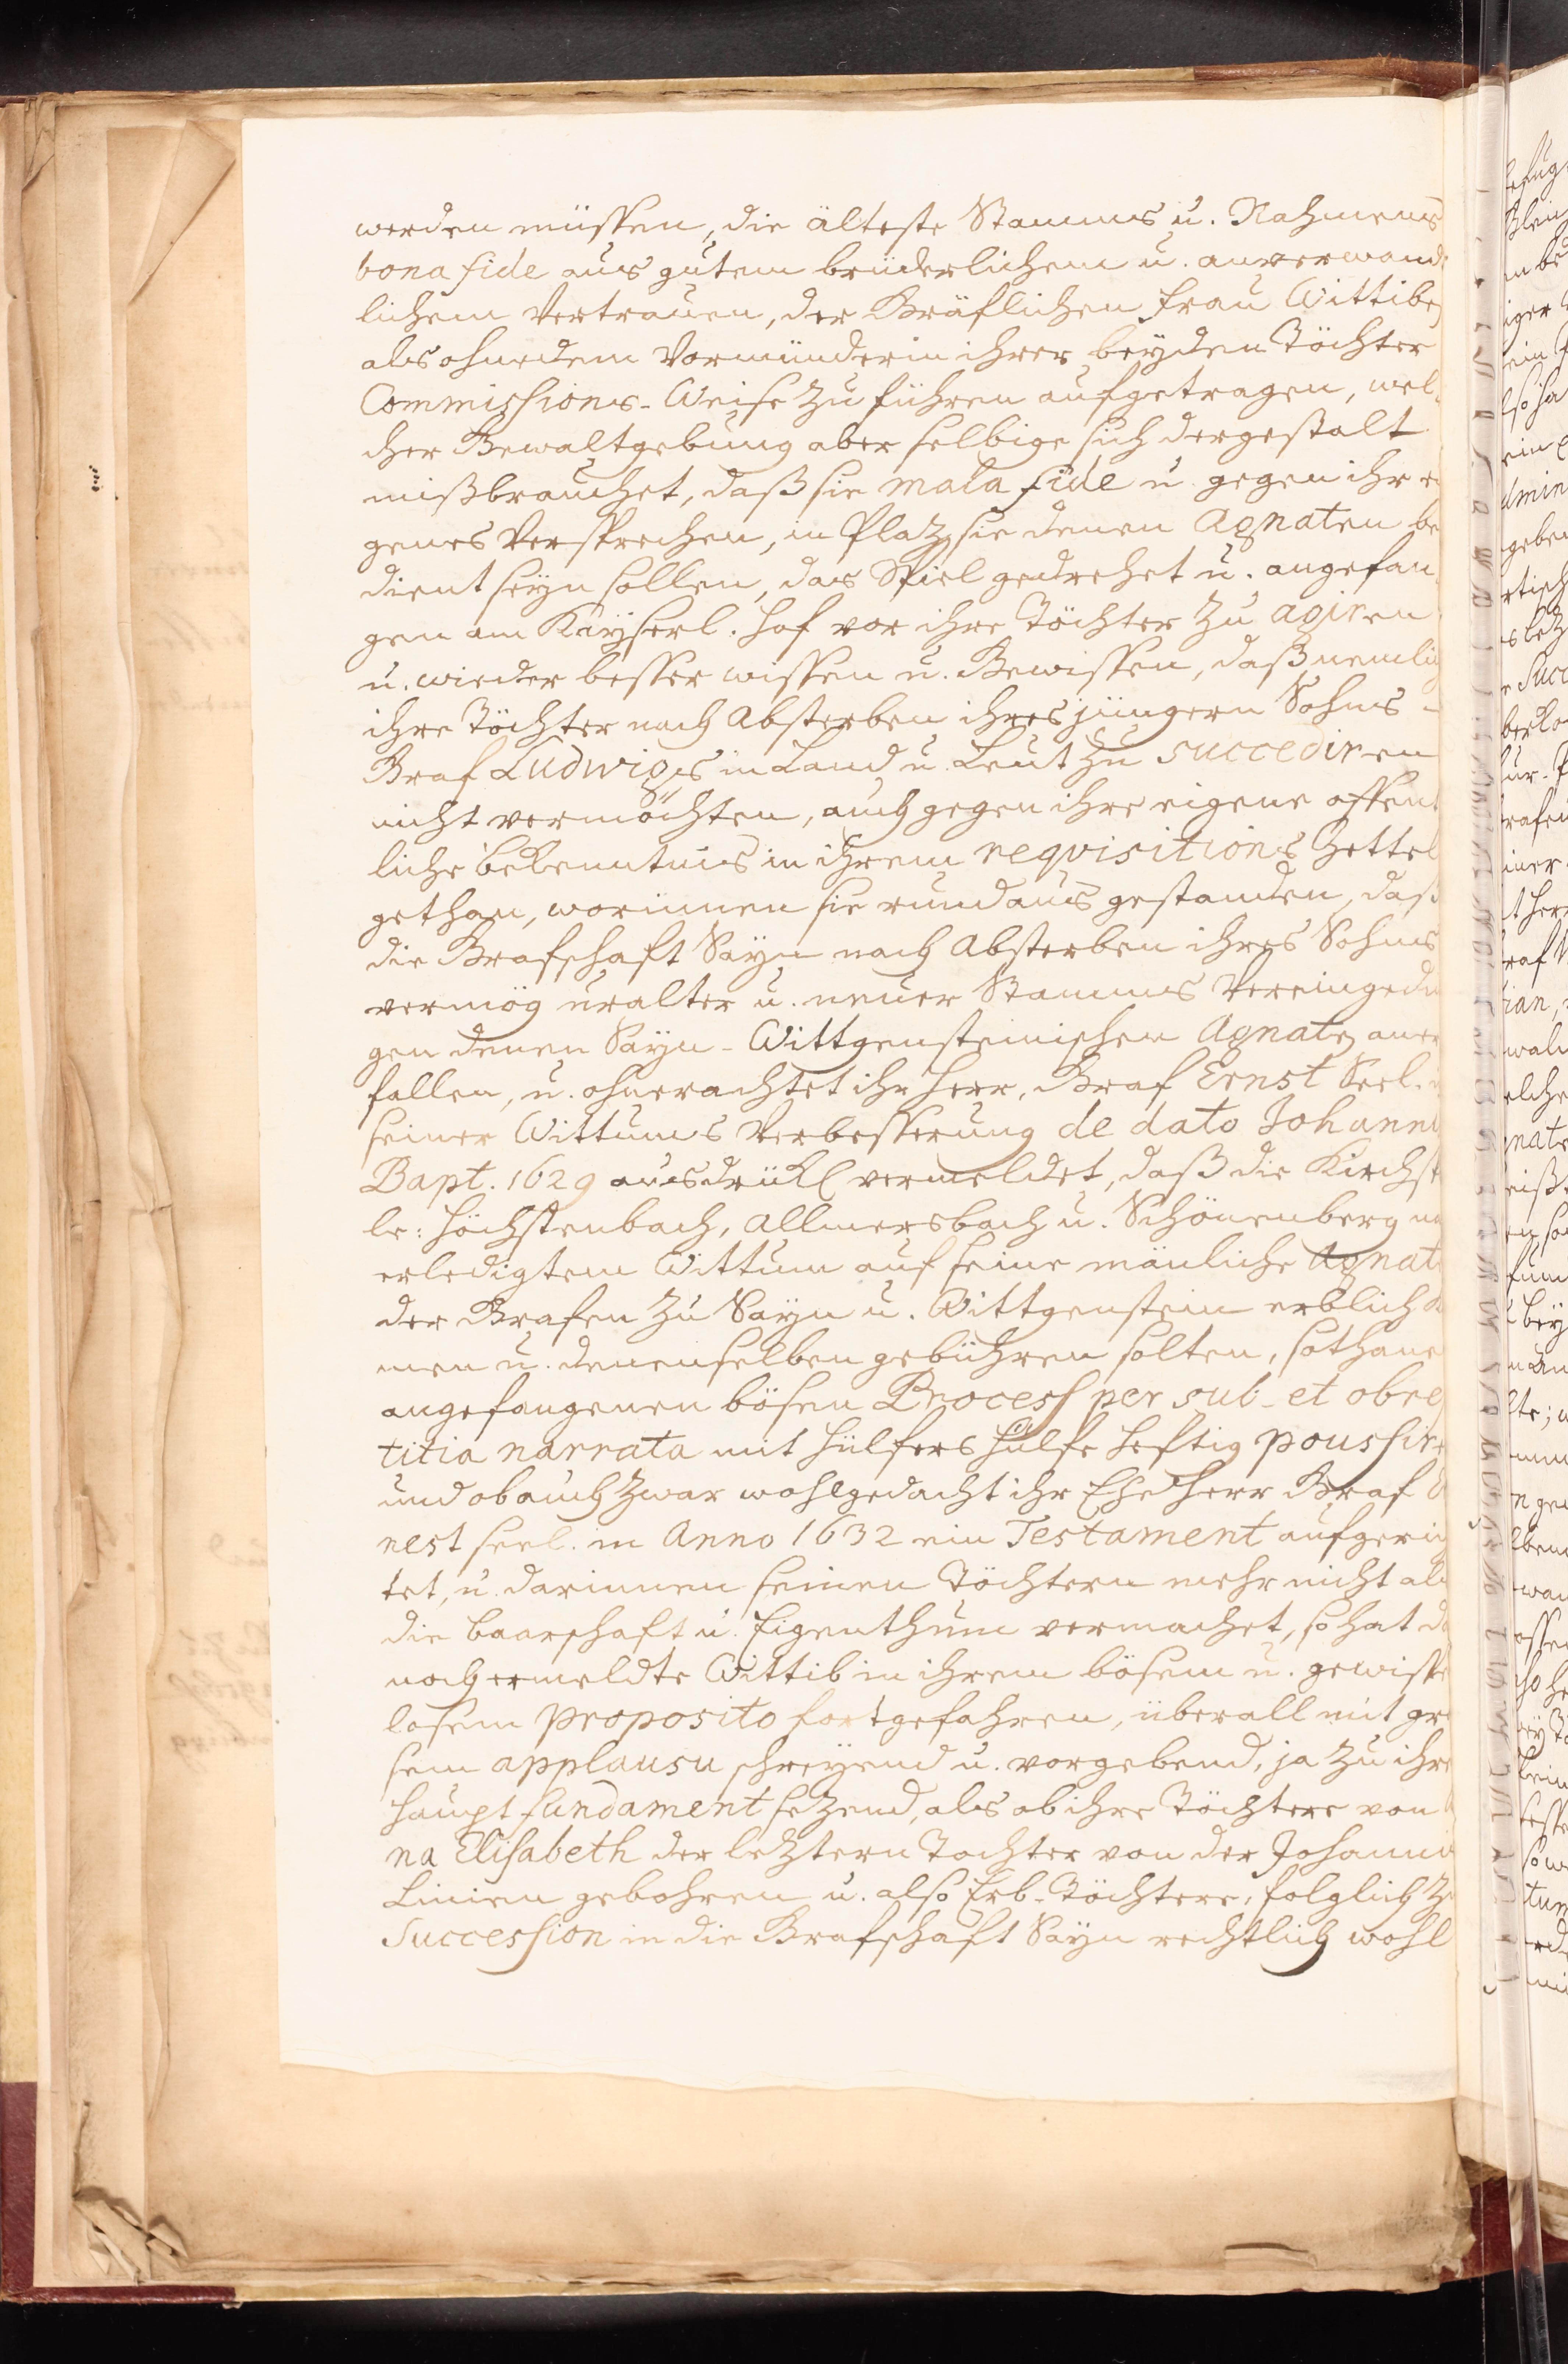 werden müssen, die älteste Stamms u. Nahmens
bona fide aus gutem brüderlichem u. anverwand
lichem Vertrauen, der Gräflichen Frau Wittibe,
als ohnedem Vormünderin ihrer beyden Töchter
Commissions-Weise zu führen aufgetragen, wel
cher Gewaltgebung aber selbige sich dergestalt
mißbrauchet, daß sie mala fide u. gegen ihr ei
genes Versprechen, in Platz sie denen Agnaten be
dient seyn sollen, das Spiel gedrehet u. angefan
gen am Käyserl. Hof vor ihre Töchter zu agiren
u. wieder besser wissen u. Gewissen, daß nemlich
ihre Töchter nach Absterben ihres jüngern Sohns-
Graf Ludwigs in Land u. Leut zu succediren
nicht vermöchten, auch gegen ihre eigene offent
liche bekenntnis in ihrem reqvisitions Zettel
gethan, worinnen sie rundaus gestanden, daß
die Grafschaft Sayn nach Absterben ihres Sohns
vermög uralter u. neuer Stamms Vereingedun
gen denen Sayn-Wittgensteinischen Agnaten aner
fallen, u. ohnerachtet ihr Herr, Graf Ernst Seel.
seiner Wittums Verbesserung de dato Johanni
Bapt. 1629 ausdrükl vermeldet, daß die Kirchsp
le: Höchstenbach, Allmersbach u. Schönenberg na
erledigtem Wittum auf seine mänliche Agnat
der Grafen zu Sayn u. Wittgenstein erblich ko
men u. denenselben gebühren solten, sothane
angefangenen bösen Process per sub- et obrep
titia narrata mit Hülfers Hülfe heftig poussire
und ob auch zwar wohlgedacht ihr Eheherr Graf E
nest seel. in Anno 1632 ein Testament aufgerich
tet, u. darinnen seinen Töchtern mehr nicht als
die baarschaft u. Eigenthum vermachet, so hat de
noch ermeldte Wittib in ihrem bösem u. gewisse
losem proposito fortgefahren, überall mit gro
sem applausu schreyend u. vorgebend, ja zu ihre
haupt fundament setzend, als ob ihre Töchtere von
na Elisabeth der letztern Tochter von der Johanni
Linien gebohren u. also Erb-Töchtere, folglich zu
Succession in die Grafschaft Sayn rechtlich wohl